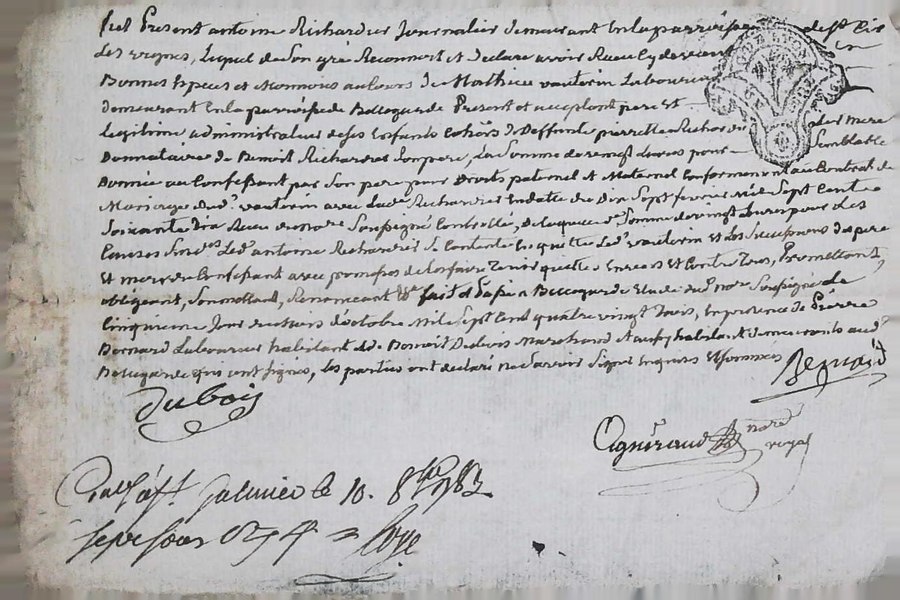 Fut Present antoine Richardier Journalier demeurant En la parroisse de st Cir
Les vignes, Lequel de Son gré Reconnoit et declare avoir Receu Cy devant En
Bonnes Especes et Monnoies au Cours de Mathieu vauterin Laboureur
demeurant En la parroisse de Bellegarde Present et acceptant pere Et
Legitime administrateur de ses Enfants Cohers de Deffunte pierrette Richardier Leur Mere
Donnataire de Benoit Richardier Son pere, La Somme de vingt Livres pour Semblable
Donnée au Confessant par Son pere pour Droits paternel et Maternel Conformement au Contrat de
Mariage dud. vauterin avec Lad. Richardier En datte du Dix Sept fevrier Mil Sept Cent
Soixante Receu du no.re Soussigné Controllé, De laquelle Somme de vingt Livres pour Les
Causes Susd.es Led. antoine Richardier Se Contente En quitte Led. vauterin Et Les Successions de pere
Et mere du Confessant avec promesses de Les faire Tenir quittes Envers Et Contre Tous, Promettant,
obligeant, Soumettant, Renonceant &.a fait et Passé a Bellegarde Etude du no.re Soussigné Le
Cinquieme Jour du mois d'octobre Mil Sept Cent quatre vingt Trois, En presence de Pierre
Bernard Laboureur habitant et de Benoit Dubois Marchand et aussy habitant demeurants aud.
Bellegarde qui ont Signés, Les parties ont declaré Ne Savoir Signer Enquis Et Sommés
Bernard
Dubois
Agniraud no.re royal
Galmier le 10. 8bre 1783
Loye